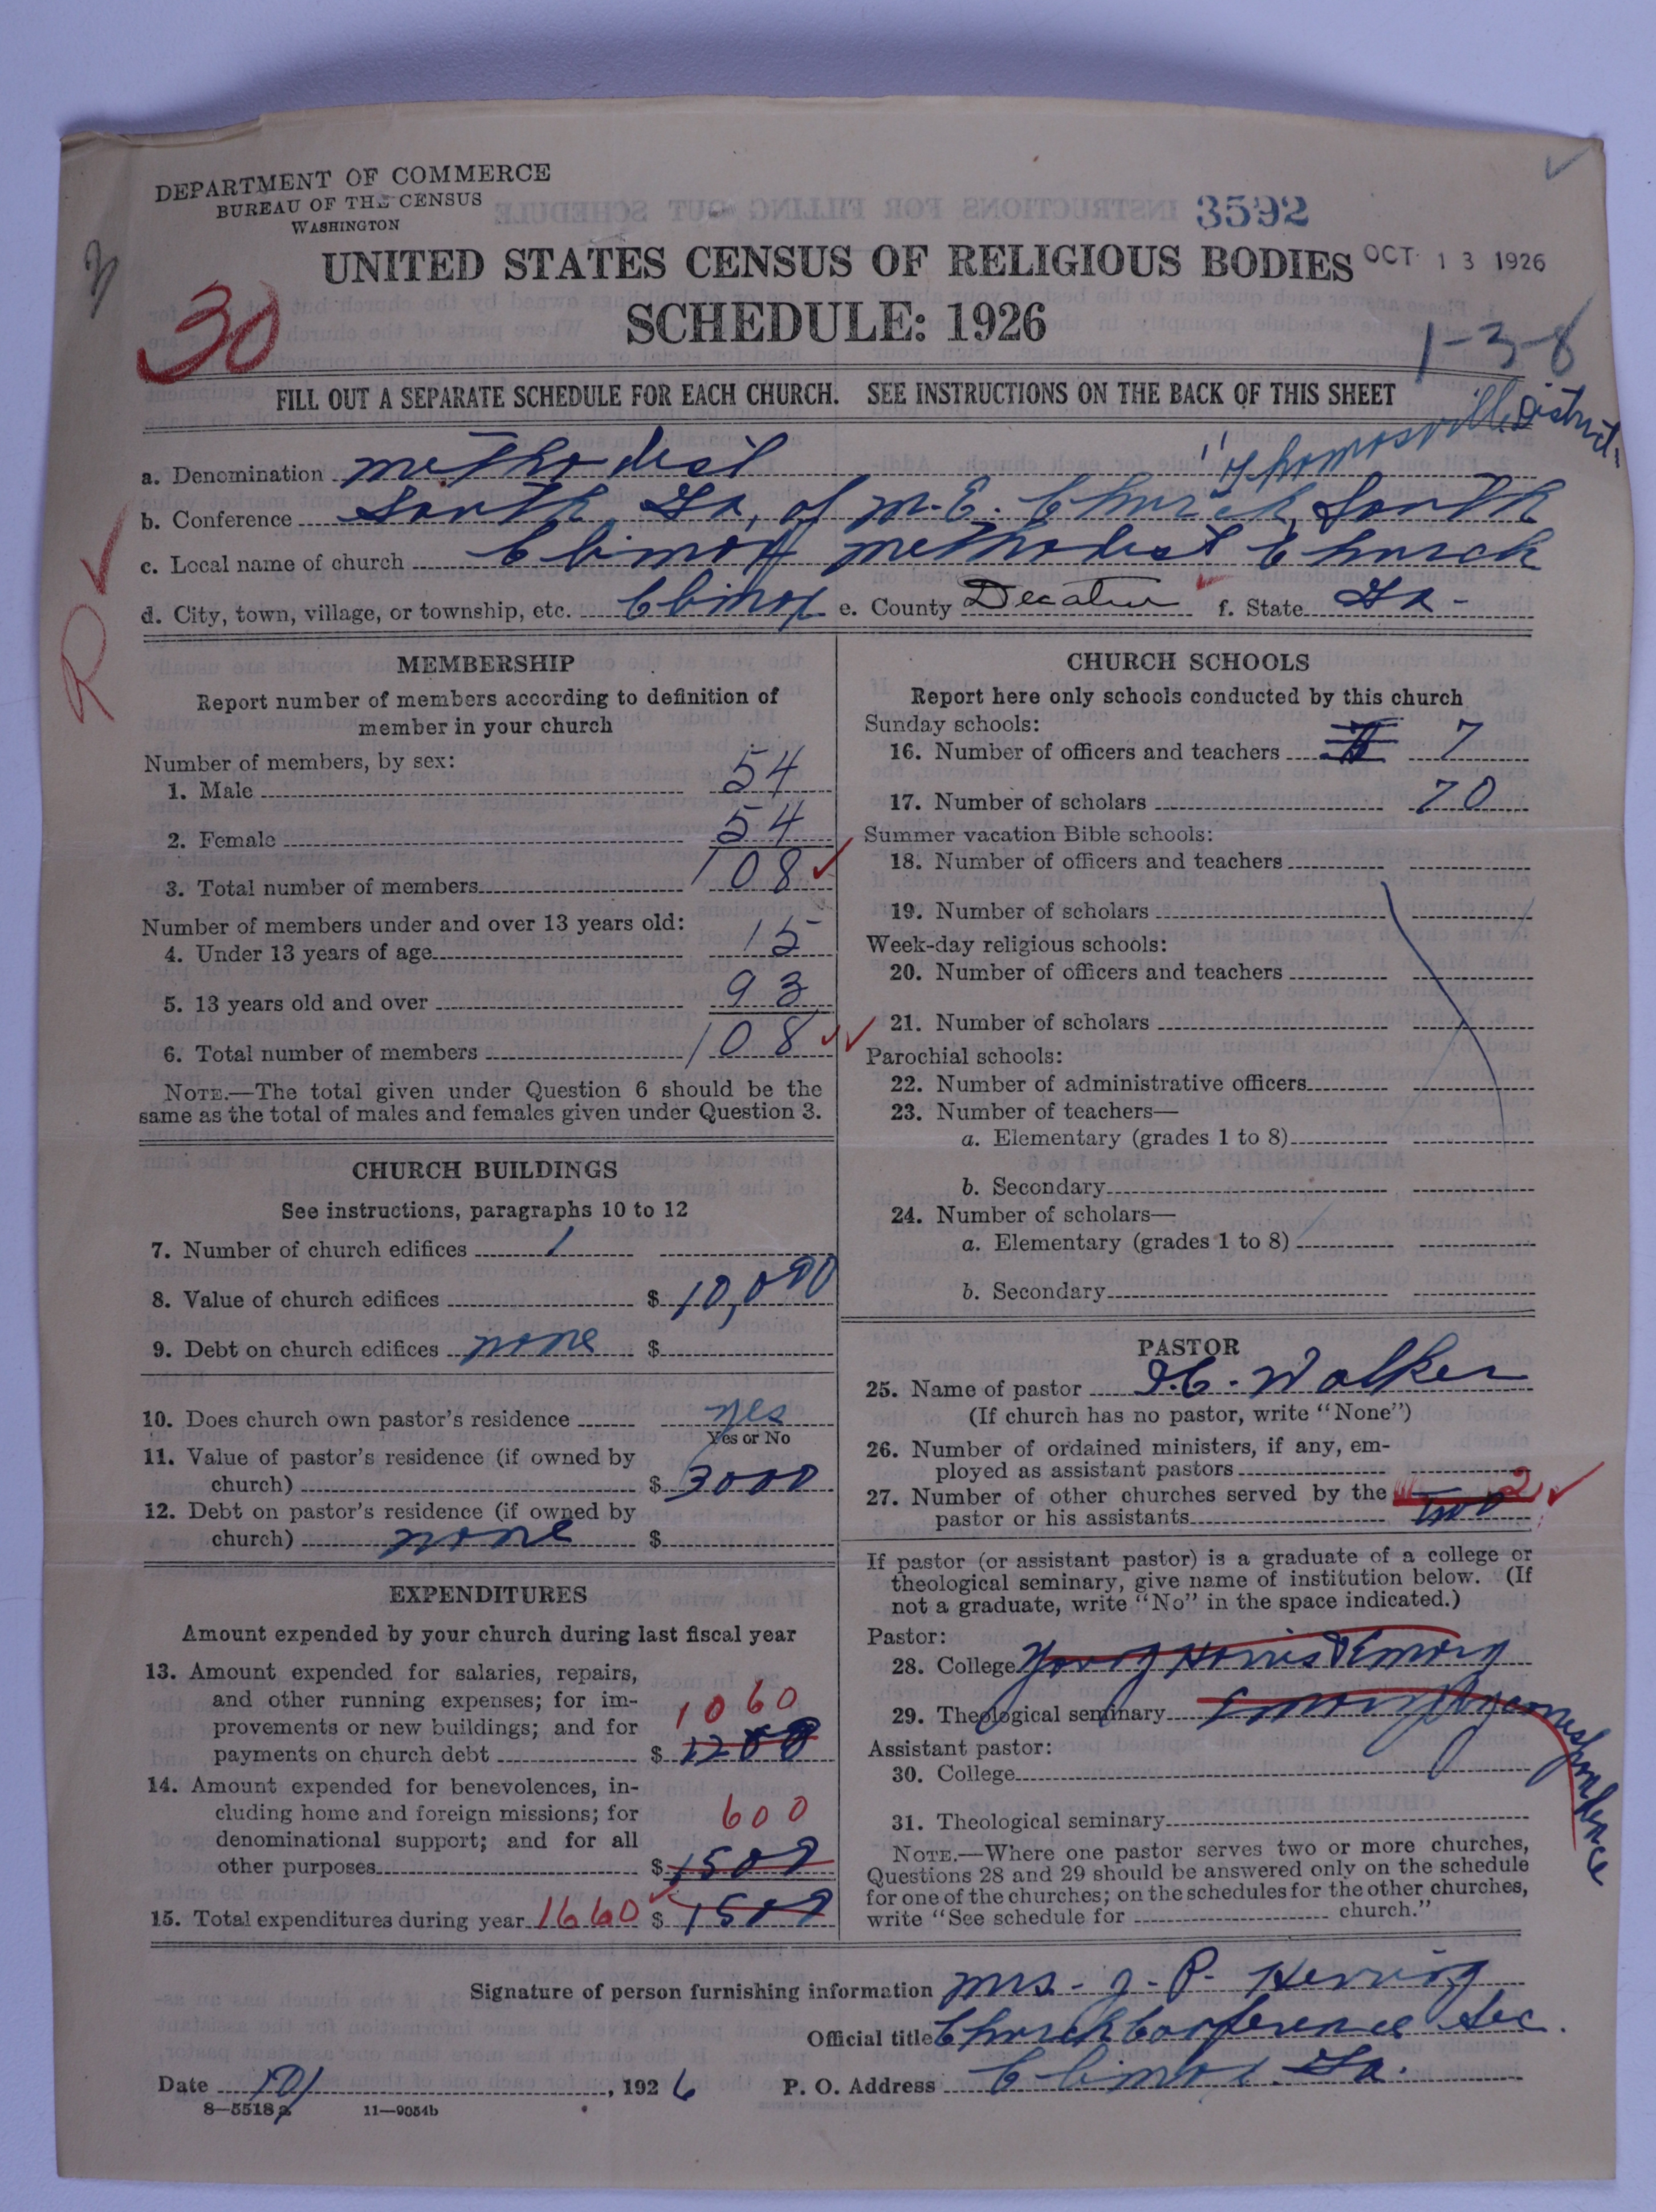 DEPARTMENT OF COMMERCE
BUREAU OF THE CENSUS
WASHINGTON
3592
UNITED STATES CENSUS OF RELIGIOUS BODIES
OCT 13 1926
SCHEDULE: 1926
30
1-3-8
FILL OUT A SEPARATE SCHEDULE FOR EACH CHURCH. SEE INSTRUCTIONS ON THE BACK OF THIS SHEET
Thomasville District
a. Denomination Methodist
b. Conference South Ga, of M.E. Church, South
c. Local name of church Climax Methodist Church
d. City, town, village, or township, etc. Climax e. County Decatur f. State Ga-
R
MEMBERSHIP
Report number of members according to definition of
member in your church
Number of members, by sex:
1. Male 54
2. Female 54
3. Total number of members 108
Number of members under and over 13 years old:
4. Under 13 years of age 15
5. 13 years old and over 93
6. Total number of members 108
NOTE.—The total given under Question 6 should be the
same as the total of males and females given under Question 3.
CHURCH BUILDINGS
See instructions, paragraphs 10 to 12
7. Number of church edifices 1
8. Value of church edifices $ 10,000
9. Debt on church edifices none $
10. Does church own pastor's residence yes
Yes or No
11. Value of pastor's residence (if owned by
church) $ 3000
12. Debt on pastor's residence (if owned by
church) none $
EXPENDITURES
Amount expended by your church during last fiscal year
13. Amount expended for salaries, repairs,
and other running expenses; for im-
provements or new buildings; and for
1060
payments on church debt $ 1200
14. Amount expended for benevolences, in-
cluding home and foreign missions; for
600
denominational support; and for all
other purposes $ 1500
15. Total expenditures during year 1660 $ 1500
CHURCH SCHOOLS
Report here only schools conducted by this church
Sunday schools:
16. Number of officers and teachers 7
17. Number of scholars 70
Summer vacation Bible schools:
18. Number of officers and teachers
19. Number of scholars
Week-day religious schools:
20. Number of officers and teachers
21. Number of scholars
Parochial schools:
22. Number of administrative officers
23. Number of teachers—
a. Elementary (grades 1 to 8)
b. Secondary
24. Number of scholars—
a. Elementary (grades 1 to 8)
b. Secondary
PASTOR
25. Name of pastor Walker
(If church has no pastor, write "None")
26. Number of ordained ministers, if any, em-
ployed as assistant pastors
27. Number of other churches served by the 2
pastor or his assistants two
If pastor (or assistant pastor) is a graduate of a college or
theological seminary, give name of institution below. (If
not a graduate, write "No" in the space indicated.)
Pastor:
28. College Young Harris & Emory
29. Theological seminary Emory by correspondence
Assistant pastor:
30. College
31. Theological seminary
NOTE.—Where one pastor serves two or more churches,
Questions 28 and 29 should be answered only on the schedule
for one of the churches; on the schedules for the other churches,
write "See schedule for church."
Signature of person furnishing information Mrs. J. P. Herring
Official title Church Conference Sec.
Date 10/1, 1926 P. O. Address Climax. Ga.
8—5518a 11—9054b